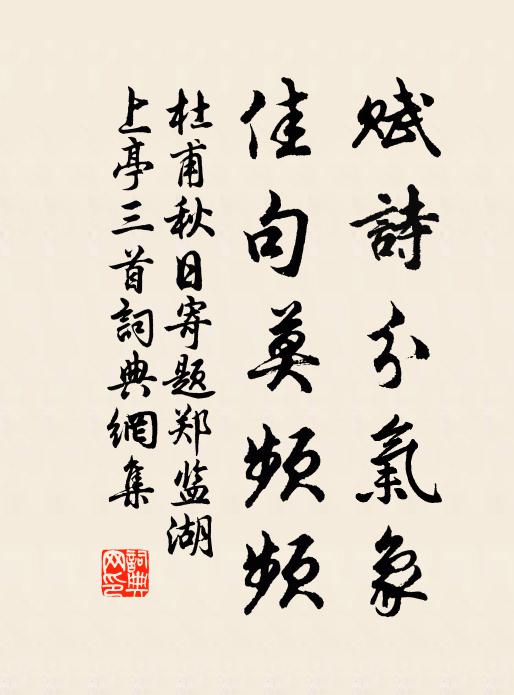 賦詩分氣象
佳句莫頻頻
杜甫秋日寄題郑监湖
上亭三首詞典網集
詞典
网印